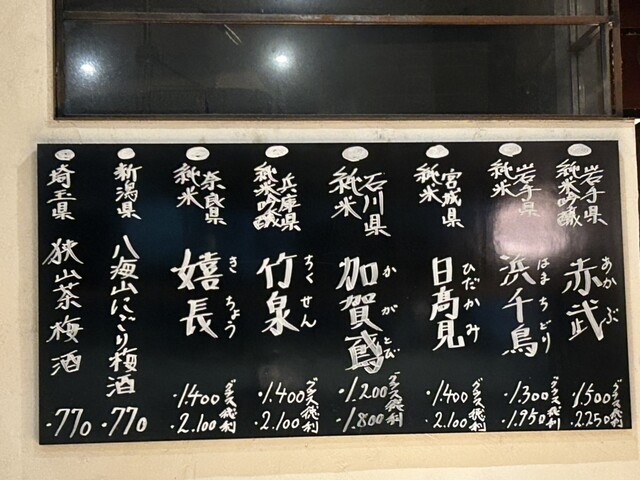 岩手県
純米吟醸
赤武
あかぶ
グラス 1.500
徳利 2.250
岩手県
純米
浜千鳥
はまちどり
グラス 1.300
徳利 1.950
宮城県
純米
日髙見
ひだかみ
グラス 1.400
徳利 2.100
石川県
純米
加賀鳶
かがとび
グラス 1.200
徳利 1.800
兵庫県
純米吟醸
竹泉
ちくせん
グラス 1.400
徳利 2.100
奈良県
純米
嬉長
きちょう
グラス 1.400
徳利 2.100
新潟県
八海山にごり梅酒
770
埼玉県
狭山茶梅酒
770